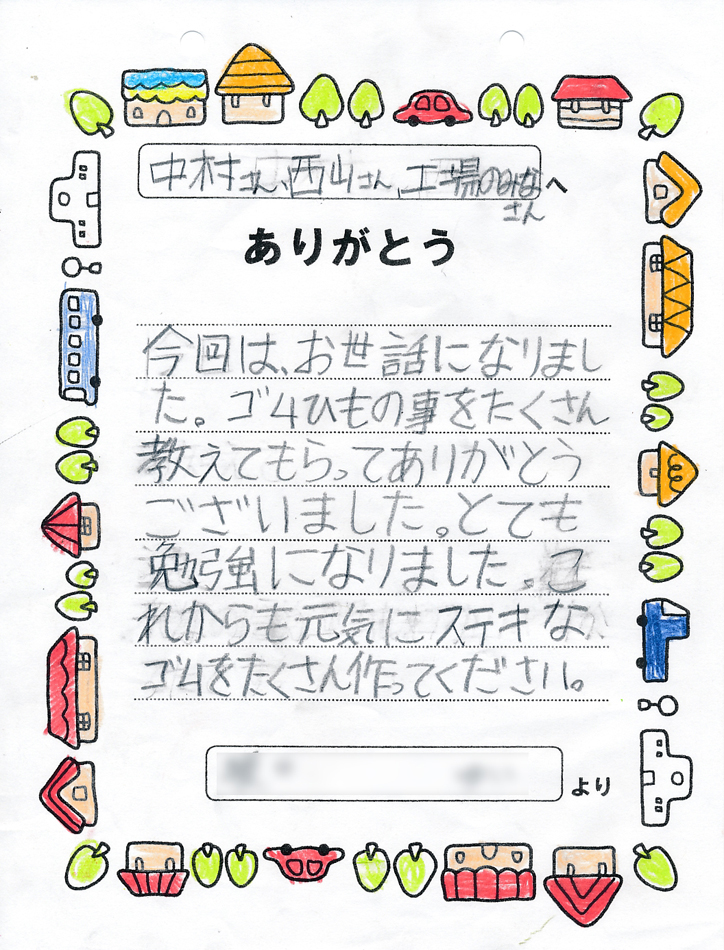 中村さん、西山さん、工場のみな
さん
へ
ありがとう
今回は、お世話になりまし
た。ゴムひもの事をたくさん
教えてもらってありがとう
ございました。とても
勉強になりました。こ
れからも元気にステキな
ゴムをたくさん作ってください。
より